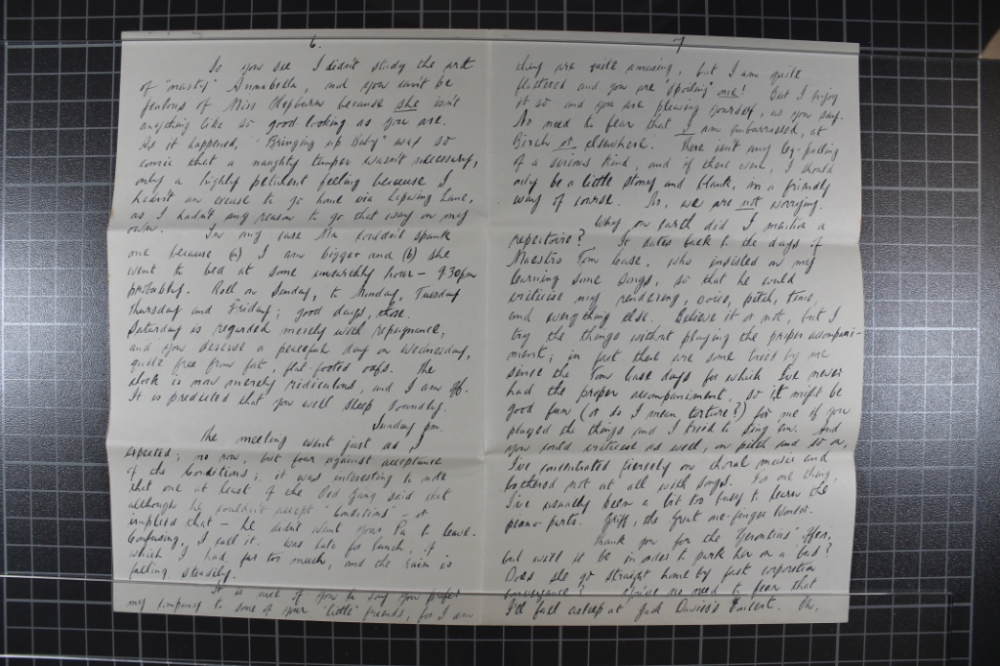 6.
So you see I didn't study the art
of "nasty" Annabella, and you can't be
jealous of Miss Hepburn because she isn't
anything like so good-looking as you are.
As it happened, "Bringing up Baby" was so
comic that a naughty temper wasn't necessary,
only a highly petulant feeling because I
hadn't an excuse to go home via Lapwing Lane,
as I hadn't any reason to go that way on my
own. In any case Ma couldn't spank
me because (a) I am bigger and (b) she
went to bed at some unearthly hour - 9.30pm
probably. Roll on Sunday, to Monday, Tuesday
Thursday and Friday; good days, those.
Saturday is regarded merely with repugnance,
and you deserve a peaceful day on Wednesday,
quite free from fat, flat-footed oafs. The
clock is now merely ridiculous, and I am off.
It is predicted that you will sleep soundly.
Sunday pm.
The meeting went just as I
expected; no row, but four against acceptance
of the Conditions; it was interesting to note
that one at least of the Old Gang said that
although he couldn't accept "Conditions" - or
implied that - he didn't want your Pa to leave.
Confusing, I call it. Was late for lunch, of
which I had far too much, and the rain is
falling steadily.
It is nice of you to say you prefer
my company to some of your "little" friends, for I am
7
they are quite amusing, but I am quite
flattered and you are "spoiling" me! But I enjoy
it so and you are pleasing yourself, as you say.
No need to fear that I am embarrassed, at
Birch or elsewhere. There isn't any leg-pulling
of a serious kind, and if there were, I should
only be a little stoney and blank, in a friendly
way of course. So, we are not worrying!
Why on earth did I mention a
repertoire? It dates back to the days of
Maestro Tom Case, who insisted on my
learning some songs, so that he could
criticise my rendering, voice, pitch, time,
and everything else. Believe it or not, but I
try the things without playing the proper accompani-
ment; in fact there are some tried by me
since the Tom Case days for which I've never
had the proper accompaniment, so it might be
good fun (or do I mean torture?) for me if you
played the things and I tried to sing 'em. And
you could criticise as well, on pitch and so on,
I've concentrated fiercely on choral music and
bothered not at all with songs. For one thing,
I've usually been a bit too busy to learn the
piano parts. Griff, the Great one-finger Wonder.
Thank you for the Gerontius offer,
but will it be in order to park her on a bus?
Does she go straight home by fast corporation
conveyance? There's no need to fear that
I'll fall asleep at Jack Davies's Concert. Oh,